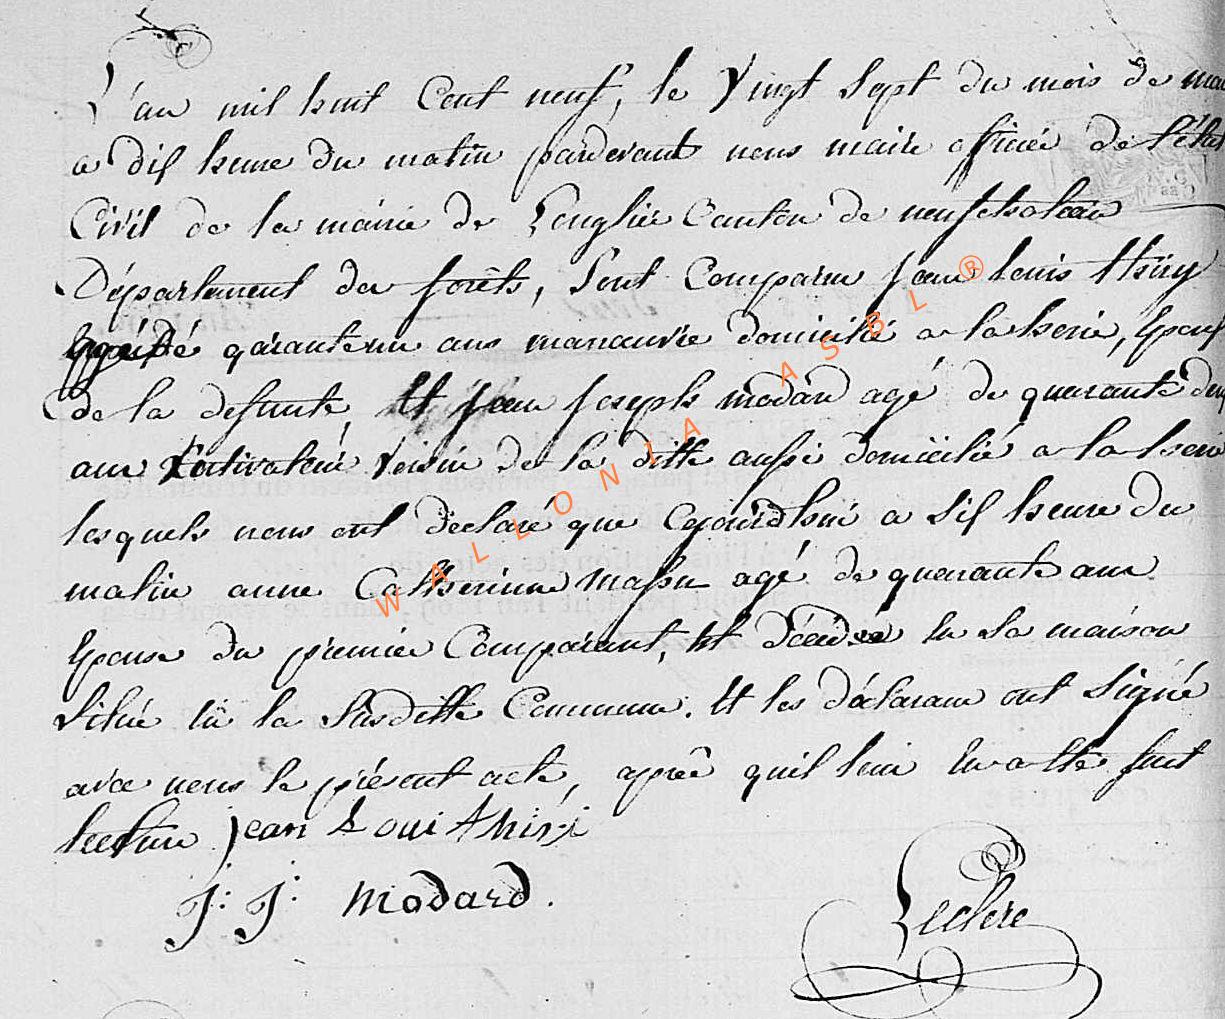 L'an mil huit Cent neuf, le Vingt sept du mois de mai
a dix heure du matin pardevant nous maire officié de l'état
Civil de la mairie de Longlier Canton de neufchateau
Département des forêts, sont Comparu Jean louis thiry
agé de quarante un ans manœuvre domicilié a la herie, Epoux
de la defunte, Et Jean Joseph modard agé de quarante deux
ans Cultivateur Voisin de la ditte aussi domicilié a la herie
lesquels nous ont déclaré que Cejourd'hui a six heure du
matin anne Catherinne masson agé de quarante ans
Epouse du premier Comparant, Est décédée En sa maison
située En la susditte Commune. Et les déclarans ont signé
avec nous le présent acte, aprés quil leur En a Eté fait
lecture Jean Loui thiri
J: J: Modard.
Leclere
WALLONIA ASBL ®